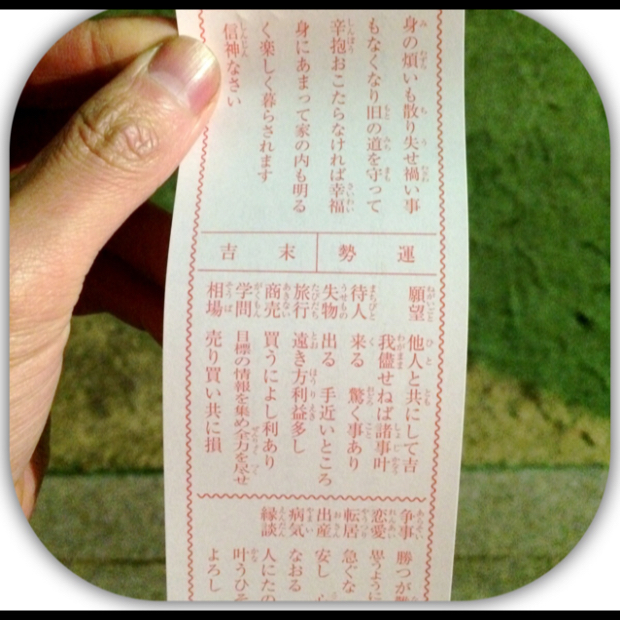 身の煩いも散り失せ禍い事
もなくなり旧の道を守って
辛抱おこたらなければ幸福
身にあまって家の内も明る
く楽しく暮らされます
信神なさい
運勢
末吉
願望 他人と共にして吉
我儘せねば諸事叶
待人 来る 驚く事あり
失物 出る 手近いところ
旅行 遠き方利益多し
商売 買うによし利あり
学問 目標の情報を集め全力を尽せ
相場 売り買い共に損
争事 勝つが
恋愛 思うように
転居 急ぐな
出産 安し
病気 なおる
縁談 人にたの
叶うひそ
よろし